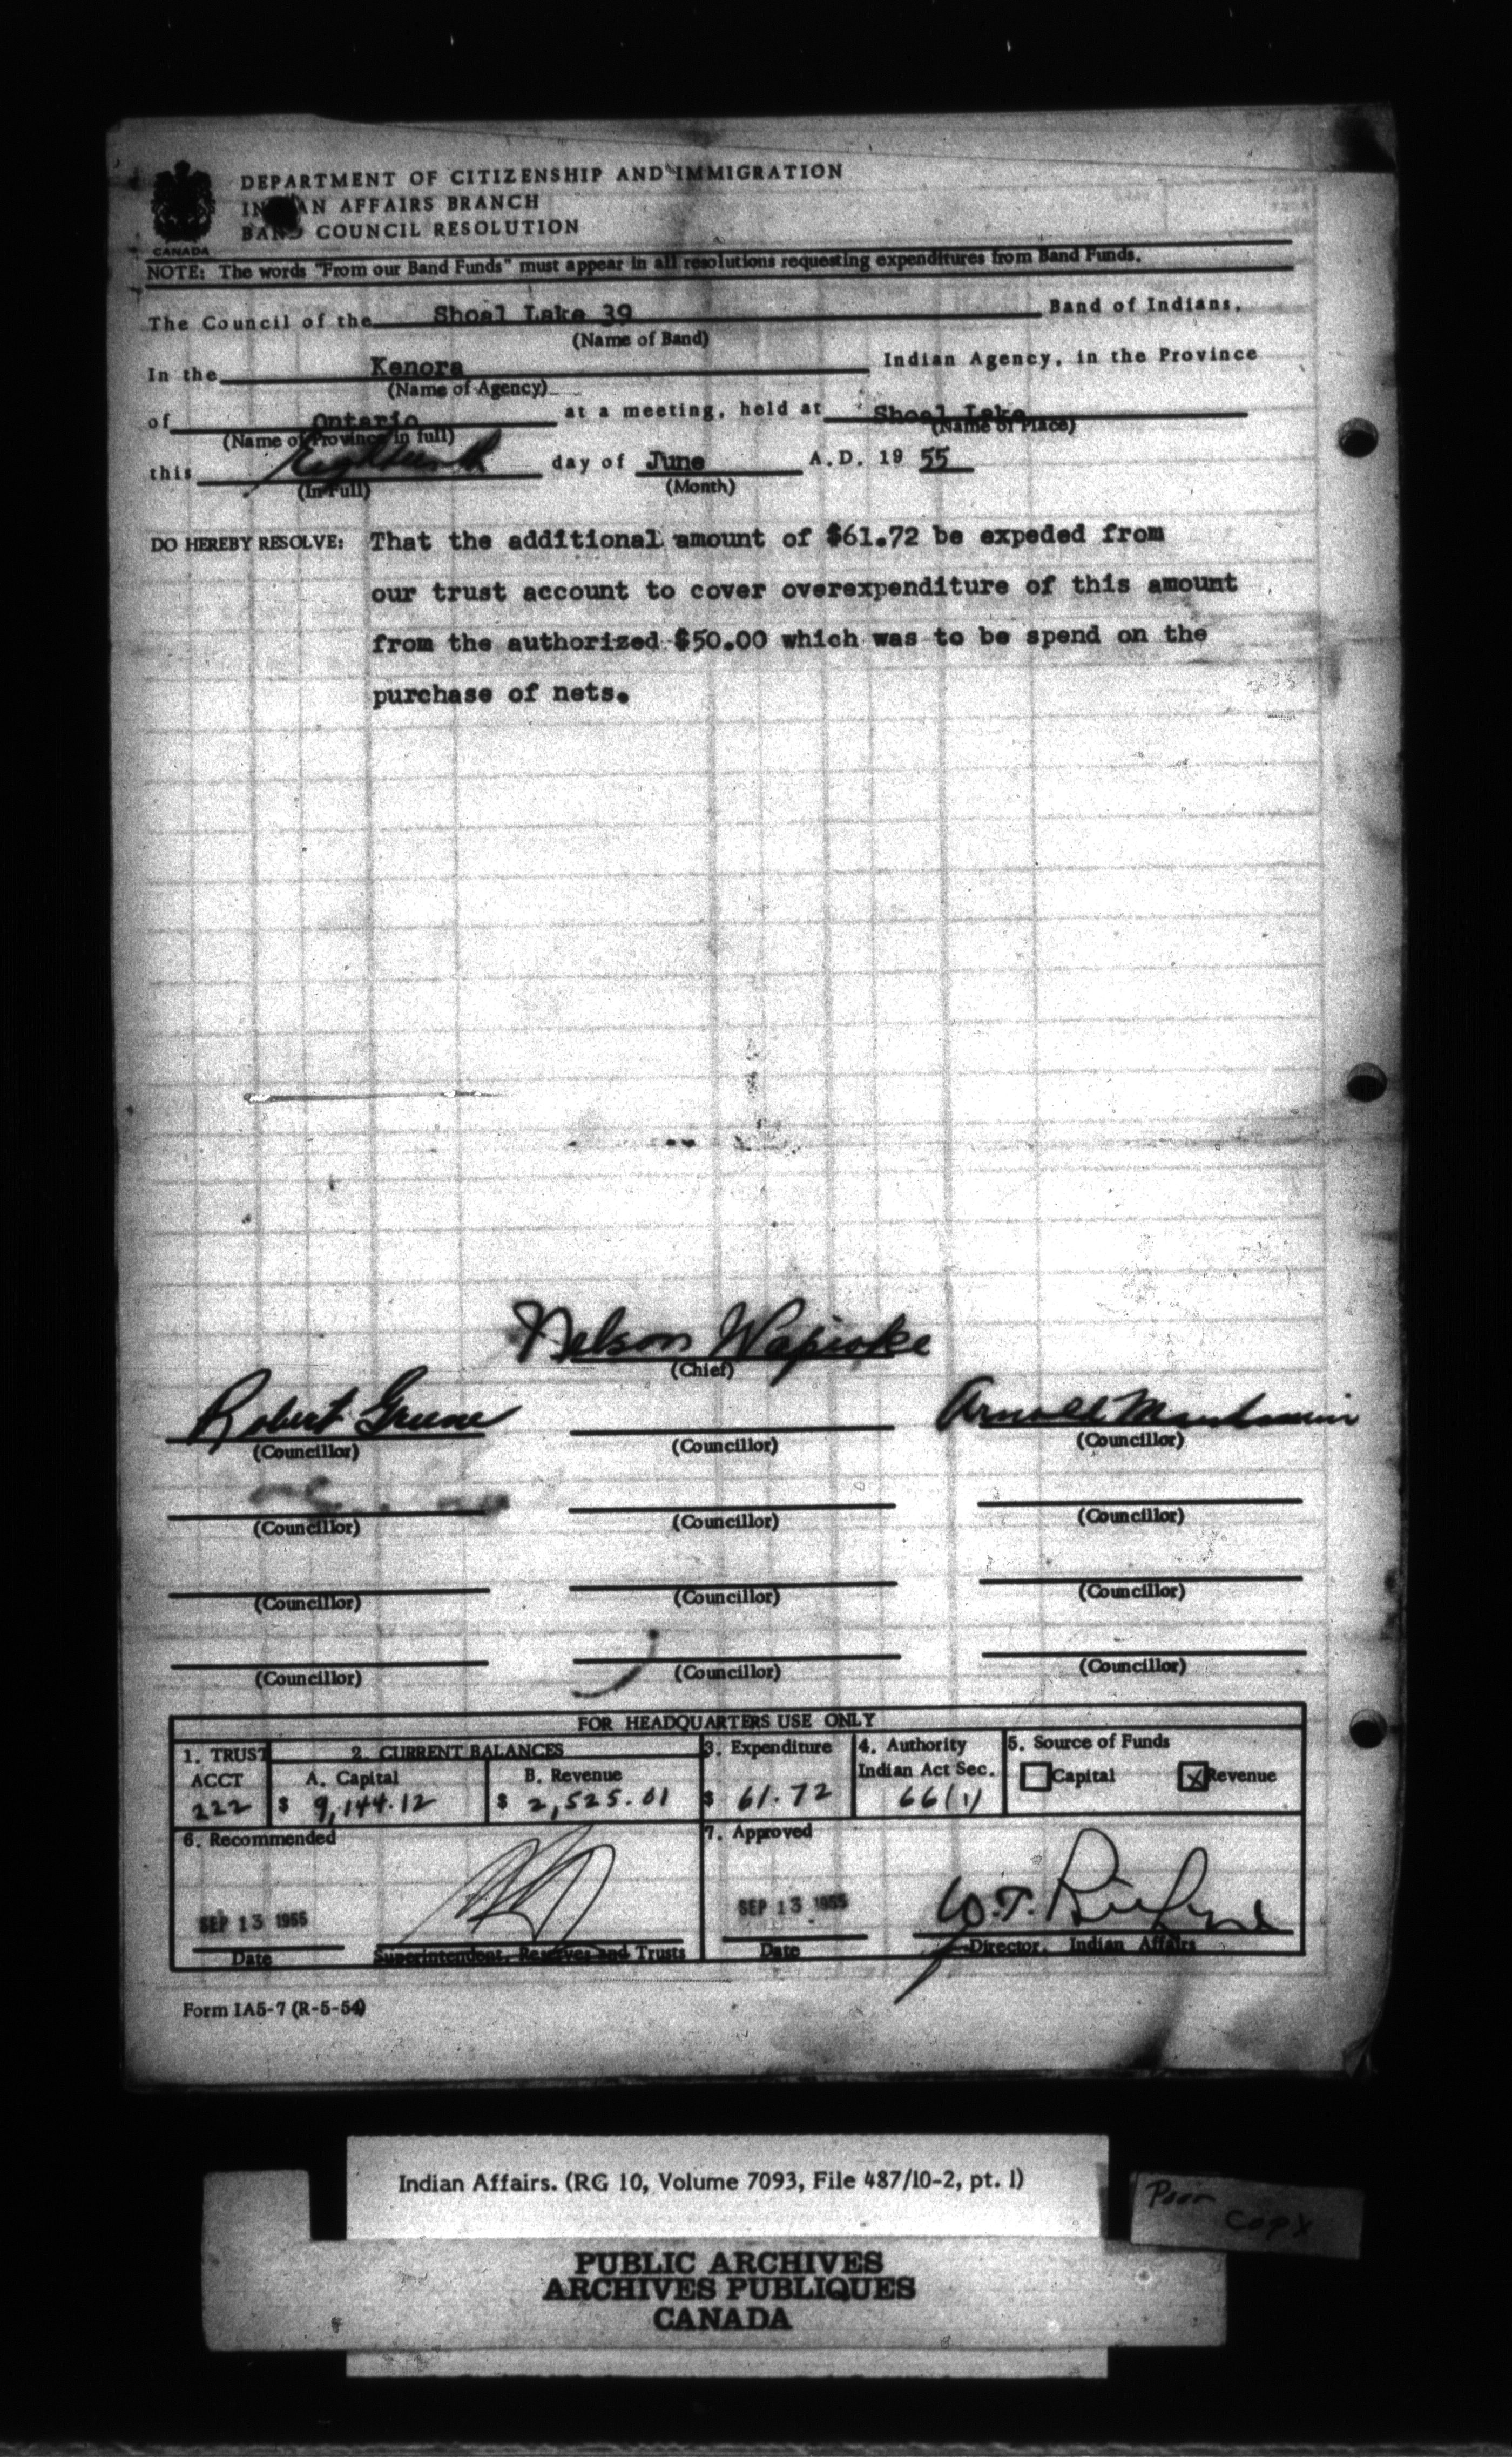 DEPARTMENT OF CITIZENSHIP AND IMMIGRATION
INDIAN AFFAIRS BRANCH
BAND COUNCIL RESOLUTION
CANADA
NOTE: The words "From our Band Funds" must appear in all resolutions requesting expenditures from Band Funds.
The Council of the Shoal Lake 39 Band of Indians,
(Name of Band)
In the Kenora Indian Agency, in the Province
(Name of Agency)
of Ontario at a meeting, held at Shoal Lake
(Name of Province in full) (Name of Place)
this Eighteenth day of June A.D. 19 55
(In Full) (Month)
DO HEREBY RESOLVE: That the additional amount of $61.72 be expeded from
our trust account to cover overexpenditure of this amount
from the authorized $50.00 which was to be spend on the
purchase of nets.
Nelson Wapioke
(Chief)
Robert Greene Arnold Mandamin
(Councillor) (Councillor) (Councillor)
(Councillor) (Councillor) (Councillor)
(Councillor) (Councillor) (Councillor)
(Councillor) (Councillor) (Councillor)
FOR HEADQUARTERS USE ONLY
1. TRUST 2. CURRENT BALANCES 3. Expenditure 4. Authority 5. Source of Funds
ACCT A. Capital B. Revenue Indian Act Sec. Capital X Revenue
222 $ 9,144.12 $ 2,525.01 $ 61.72 66(1)
6. Recommended 7. Approved
SEP 13 1955 SEP 13 1955 W.T.
Date Superintendent, Reserves and Trusts Date Director, Indian Affairs
Form IA5-7 (R-5-54)
Indian Affairs. (RG 10, Volume 7093, File 487/10-2, pt. 1)
Poor
Copy
PUBLIC ARCHIVES
ARCHIVES PUBLIQUES
CANADA